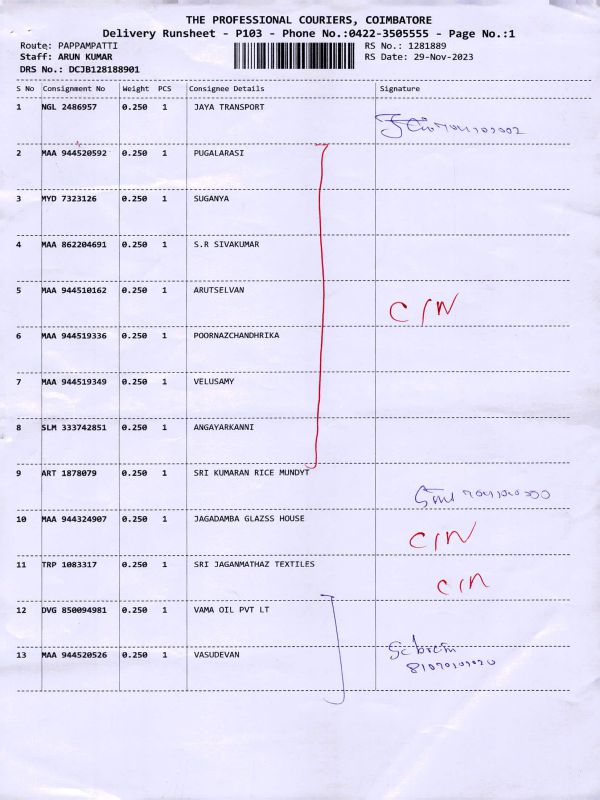 THE PROFESSIONAL COURIERS, COIMBATORE
Delivery Runsheet - P103 - Phone No.:0422-3505555 - Page No.:1
Route: PAPPAMPATTI RS No.: 1281889
Staff: ARUN KUMAR RS Date: 29-Nov-2023
DRS No.: DCJB128188901
S No Consignment No Weight PCS Consignee Details Signature
1 NGL 2486957 0.250 1 JAYA TRANSPORT
2 MAA 944520592 0.250 1 PUGALARASI
3 MYD 7323126 0.250 1 SUGANYA
4 MAA 862204691 0.250 1 S.R SIVAKUMAR
5 MAA 944510162 0.250 1 ARUTSELVAN
C/N
6 MAA 944519336 0.250 1 POORNAZCHANDHRIKA
7 MAA 944519349 0.250 1 VELUSAMY
8 SLM 333742851 0.250 1 ANGAYARKANNI
9 ART 1878079 0.250 1 SRI KUMARAN RICE MUNDYT
10 MAA 944324907 0.250 1 JAGADAMBA GLAZSS HOUSE
C/N
11 TRP 1083317 0.250 1 SRI JAGANMATHAZ TEXTILES
C/N
12 DVG 850094981 0.250 1 VAMA OIL PVT LT
13 MAA 944520526 0.250 1 VASUDEVAN